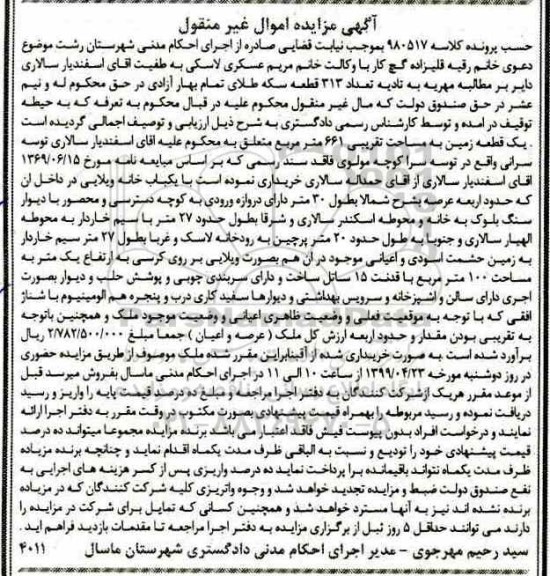 آگهی مزایده اموال غیر منقول
حسب پرونده کلاسه ۹۸۰۵۱۷ بموجب نیابت قضایی صادره از اجرای احکام مدنی شهرستان رشت موضوع
دعوی خانم رقیه قلیزاده گچ کار با وکالت خانم مریم عسکری لاسکی به طفیت اقای اسفندیار سالاری
دایر بر مطالبه مهریه به تادیه تعداد ۳۱۳ قطعه سکه طلای تمام بهار آزادی در حق محکوم له و نیم
عشر در حق صندوق دولت که مال غیر منقول محکوم علیه در قبال محکوم به تعرفه که به حیطه
توقیف در امده و توسط کارشناس رسمی دادگستری به شرح ذیل ارزیابی و توصیف اجمالی گردیده است
. یک قطعه زمین به مساحت تقریبی ۶۶۱ متر مربع متعلق به محکوم علیه اقای اسفندیار سالاری توسه
سرانی واقع در توسه سرا کوچه مولوی فاقد سند رسمی که بر اساس مبایعه نامه مورخ ۱۳۶۹/۰۶/۱۵
اقای اسفندیار سالاری از اقای حمداله سالاری خریداری نموده است با یکباب خانه ویلایی در داخل ان
که حدود اربعه عرصه بشرح شمالا بطول ۳۰ متر دارای دروازه ورودی به کوچه دسترسی و محصور با دیوار
سنگ بلوک به خانه و محوطه اسکندر سالاری و شرقا بطول حدود ۲۷ متر با سیم خاردار به محوطه
الهیار سالاری و جنوبا به طول حدود ۲۰ متر پرچین به رودخانه لاسک و غربا بطول ۲۷ متر سیم خاردار
به زمین حشمت اسودی و اعیانی موجود در ان هم بصورت ویلایی بر روی کرسی به ارتفاع یک متر به
مساحت ۱۰۰ متر مربع با قدمت ۱۵ سال ساخت و دارای سربندی چوبی و پوشش حلب و دیوار بصورت
اجری دارای سالن و اشپزخانه و سرویس بهداشتی و دیوارها سفید کاری درب و پنجره هم الومینیوم با شناژ
افقی که با توجه به موقعیت فعلی و وضعیت ظاهری اعیانی و وضعیت موجود ملک و همچنین باتوجه
به تقریبی بودن مقدار و حدود اربعه ارزش کل ملک ( عرصه و اعیان ) جمعا مبلغ ۲/۷۸۲/۵۰۰/۰۰۰ ریال
برآورد شده است به صورت خریداری شده از آقبنابراین مقرر شده ملک موصوف از طریق مزایده حضوری
در روز دوشنبه مورخه ۱۳۹۹/۰۴/۲۳ از ساعت ۱۰ الی ۱۱ در اجرای احکام مدنی ماسال بفروش میرسد قبل
از موعد مقرر هریک ازشرکت کنندگان به دفتر اجرا مراجعه و مبلغ ده درصد قیمت پایه را واریز و رسید
دریافت نموده و رسید مربوطه را بهمراه قیمت پیشنهادی بصورت مکتوب در وقت مقرر به دفتر اجرا ارائه
نمایند و درخواست افراد بدون پیوست فیش فاقد اعتبار می باشد برنده مزایده مجموعا میتواند ده درصد
قیمت پیشنهادی خود را تودیع و نسبت به الباقی ظرف مدت یکماه اقدام نماید و چنانچه برنده مزیاده
ظرف مدت یکماه نتواند باقیمانده برا پرداخت نماید ده درصد واریزی پس از کسر هزینه های اجرایی به
نفع صندوق دولت ضبط و مزایده تجدید خواهد شد و وجوه واتریزی کلیه شرکت کنندگان که در مزیاده
برنده نشده اند نیز به آنها مسترد خواهد شد و همچنین کسانی که تمایل برای شرکت در مزایده را
دارند می توانند حداقل ۵ روز ثبل از برگزاری مزایده به دفتر اجرا مراجعه تا مقدمات بازدید فراهم اید .
سید رحیم مهرجوی – مدیر اجرای احکام مدنی دادگستری شهرستان ماسال ۴۰۱۱